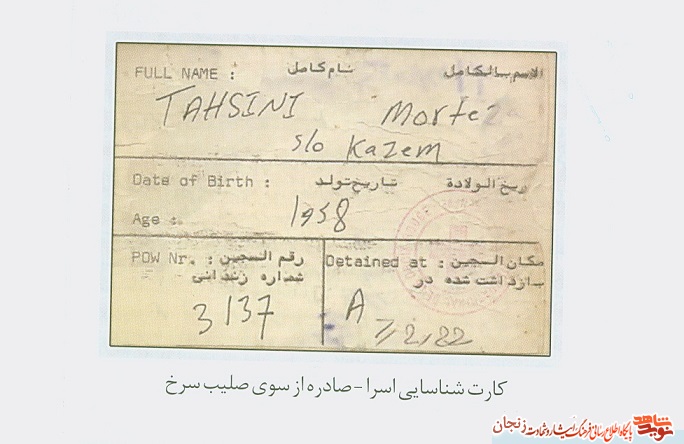 FULL NAME : نام کامل الاسم بالکامل
TAHSINI Morteza
s/o Kazem
Date of Birth : تاریخ تولد تاریخ الولادة
1958
Age :
POW Nr. : رقم السجین :
شماره زندانی
3137
Detained at : مکان السجین
بازداشت شده در
A
7/2/22
کارت شناسایی اسرا - صادره از سوی صلیب سرخ
نوید شاهد
پایگاه اطلاع رسانی فرهنگ ایثار و شهادت زنجان